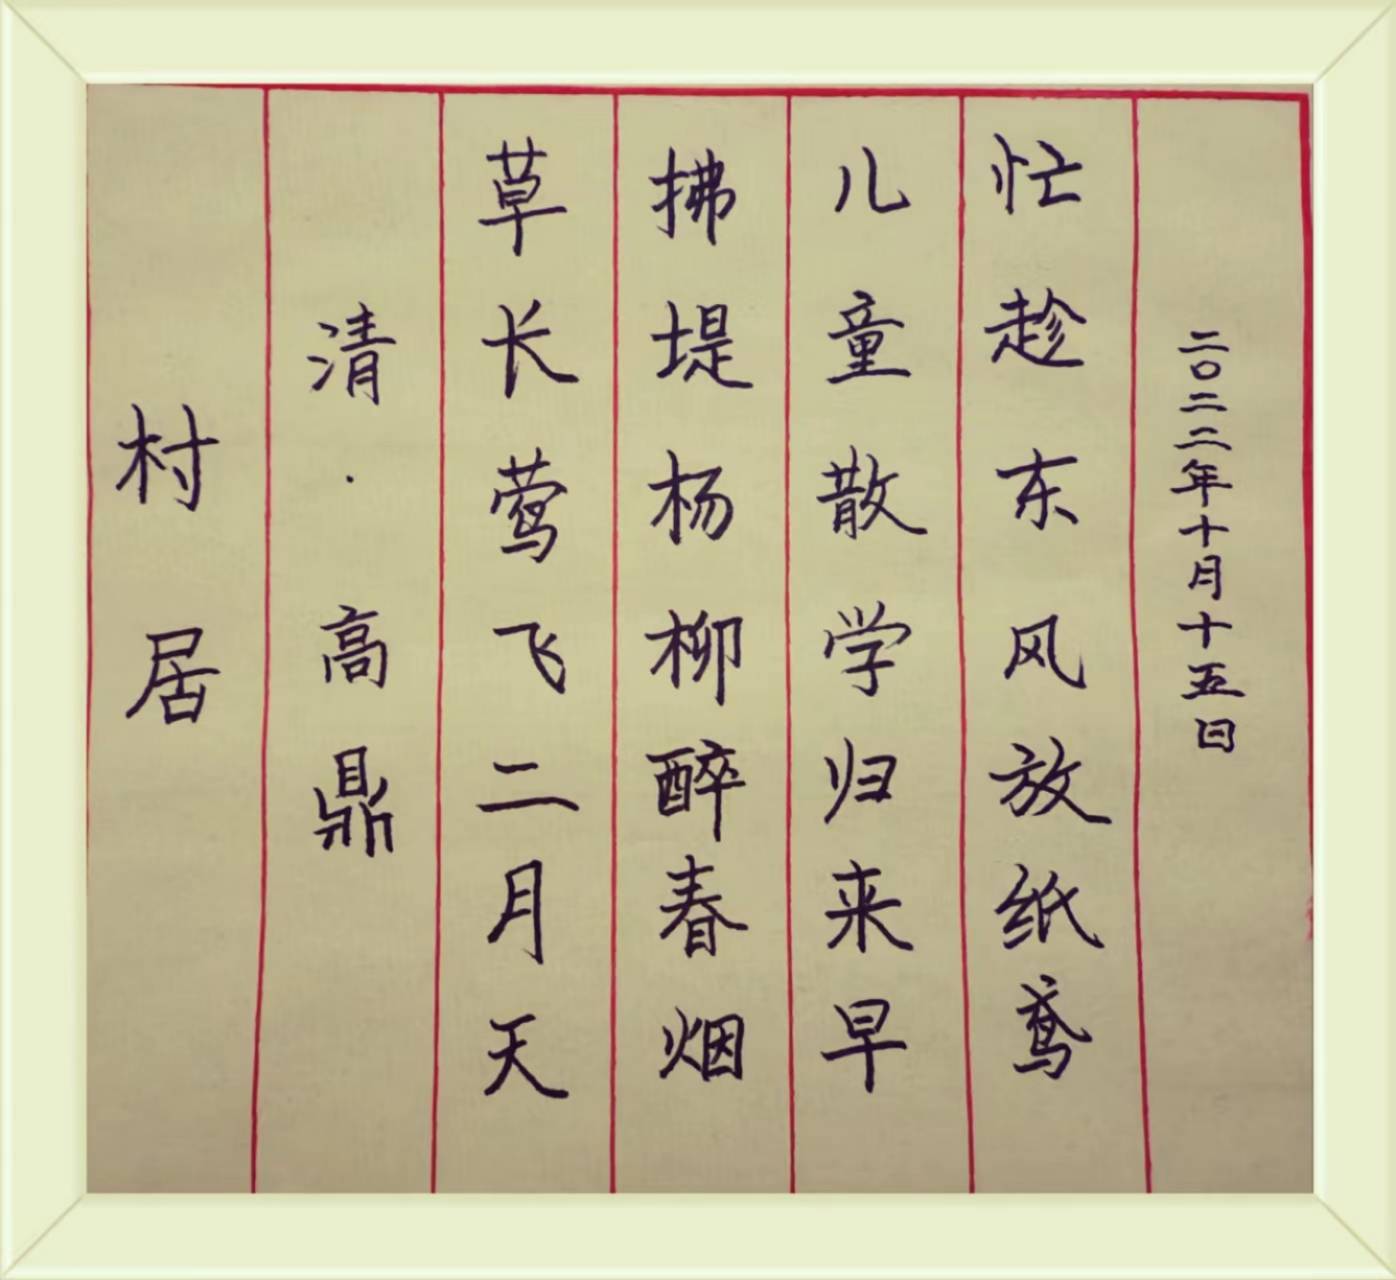 村居
清·高鼎
草长莺飞二月天
拂堤杨柳醉春烟
儿童散学归来早
忙趁东风放纸鸢
二〇二二年十月十五日